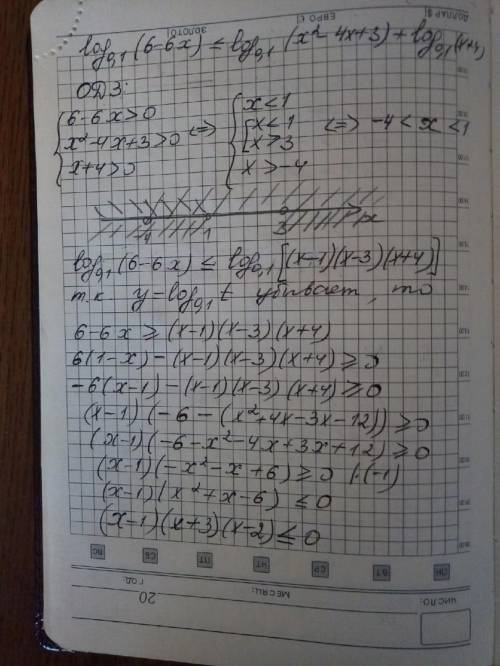 ЗОЛОТО
ЕВРО €
ДОЛЛАР $
log₀,₁(6-6x) ≤ log₀,₁(x²-4x+3) + log₀,₁(x+4)
ОДЗ:
{6-6x>0
x²-4x+3>0
x+4>0 <=> {x<1
[x<1
x>3
x>-4 <=> -4<x<1
-4 1 3 x
log₀,₁(6-6x) ≤ log₀,₁[(x-1)(x-3)(x+4)]
т.к. y=log₀,₁ t убывает, то
6-6x ≥ (x-1)(x-3)(x+4)
6(1-x)-(x-1)(x-3)(x+4) ≥ 0
-6(x-1)-(x-1)(x-3)(x+4) ≥ 0
(x-1)(-6-(x²+4x-3x-12)) ≥ 0
(x-1)(-6-x²-4x+3x+12) ≥ 0
(x-1)(-x²-x+6) ≥ 0 |·(-1)
(x-1)(x²+x-6) ≤ 0
(x-1)(x+3)(x-2) ≤ 0
ВС СБ ПТ ЧТ СР ВТ ПН
20 ГОД: МЕСЯЦ: ЧИСЛО: